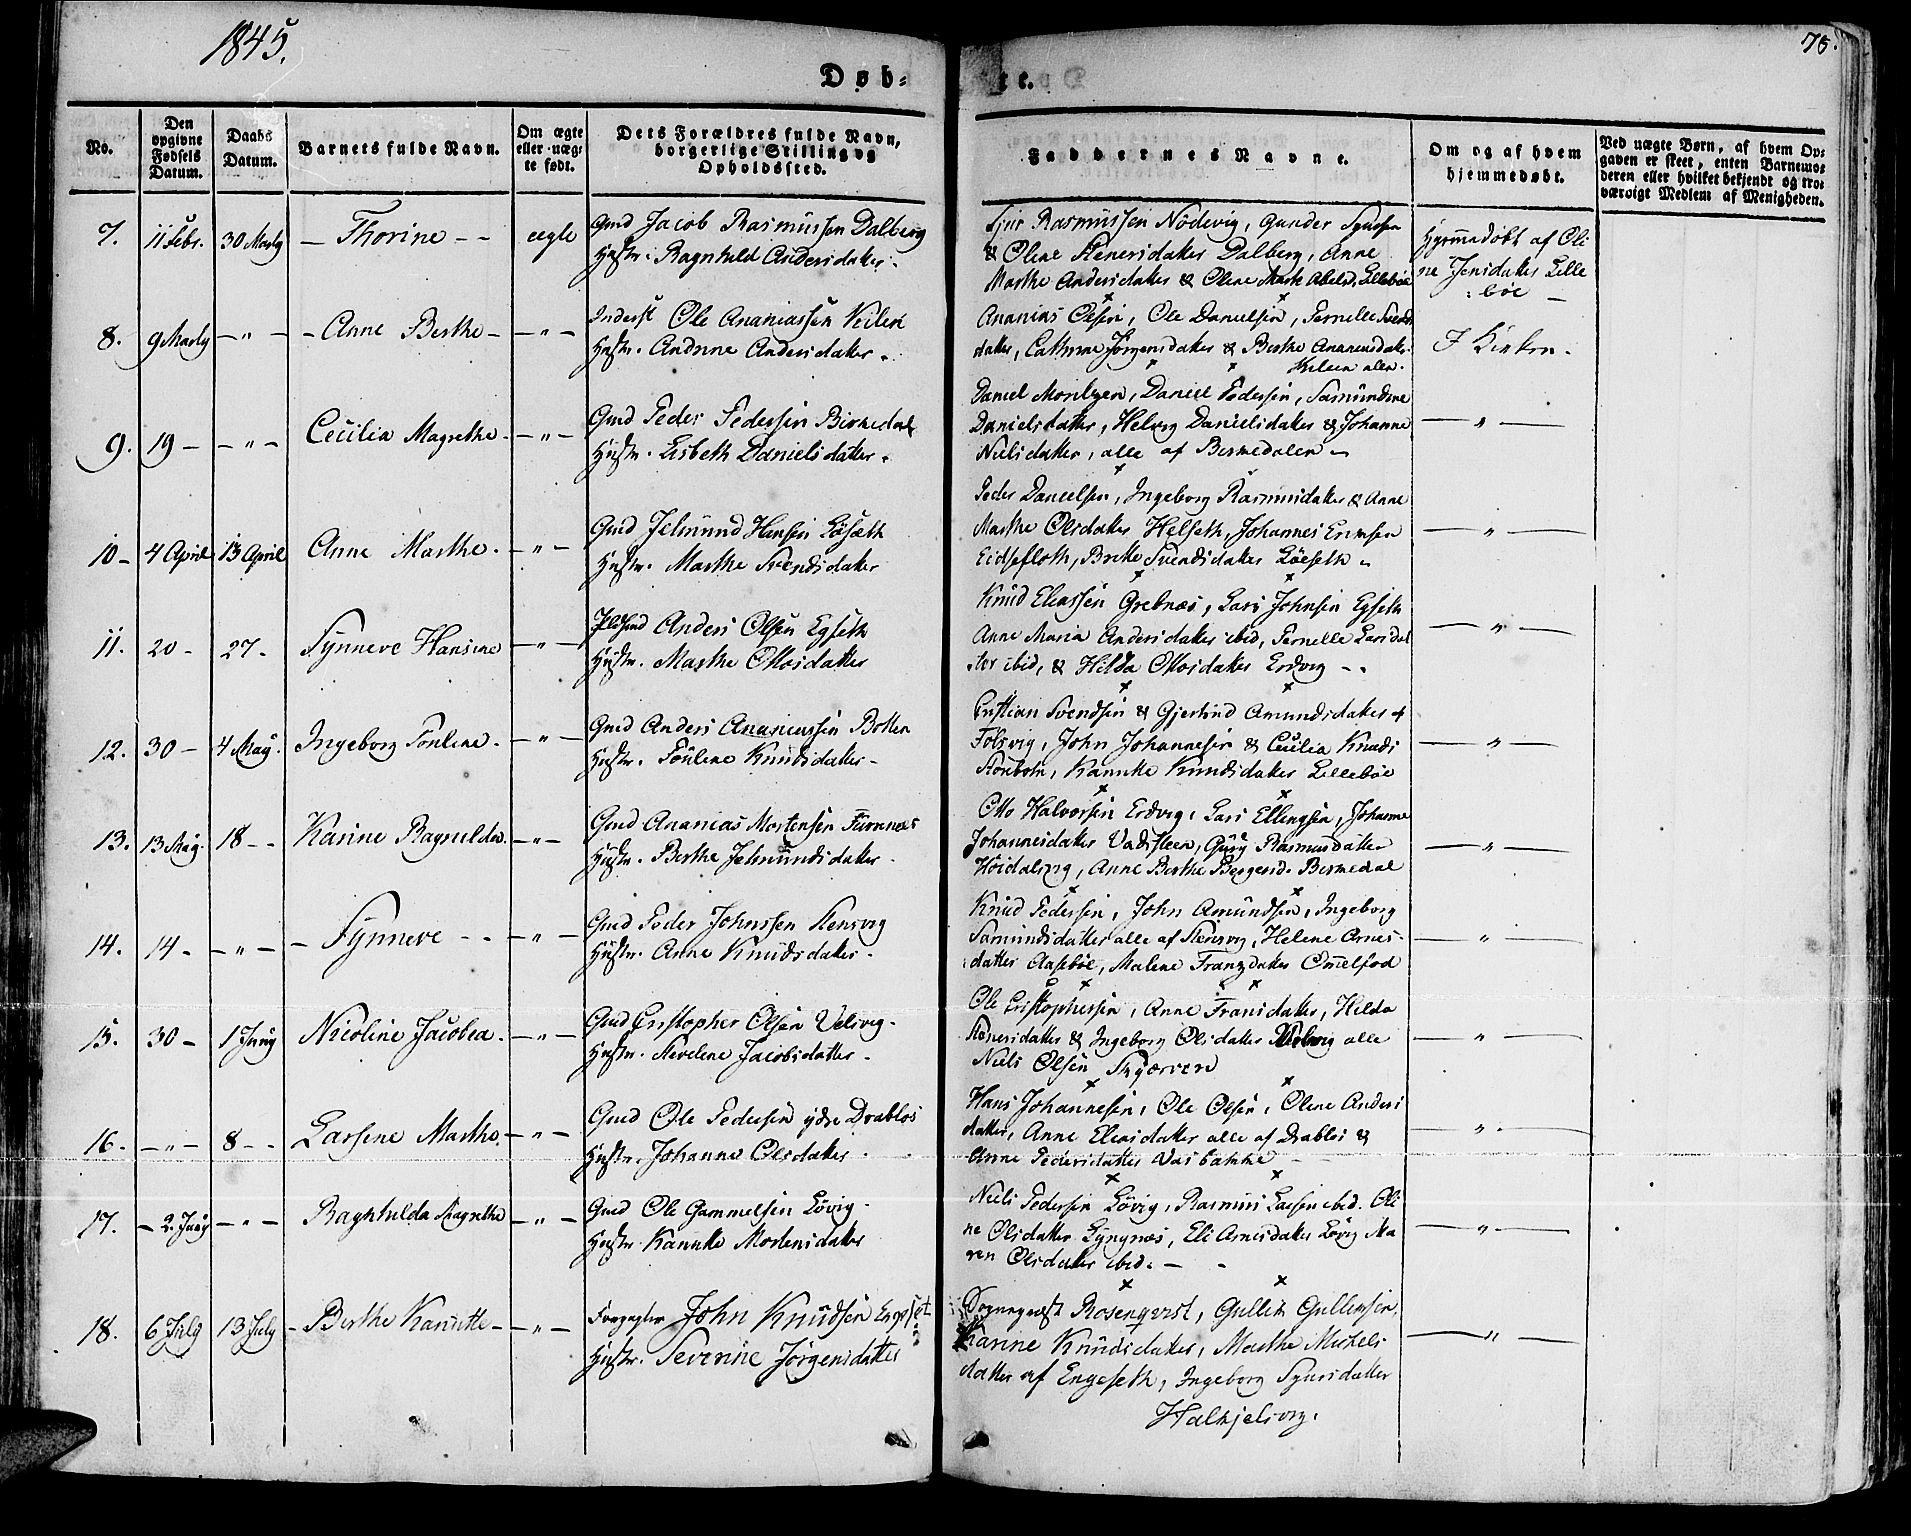 1845.
75.
Døb-
te.
No.
Den opgivne Fødsels Datum.
Daabs Datum.
Barnets fulde Navn.
Om ægte eller uægte født.
Dets Forældres fulde Navn, borgerlige Stilling og Opholdssted.
Faddernes Navne.
Om og af hvem hjemmedøbt.
Ved uægte Børn, af hvem Opgaven er skeet, enten Barnemoderen eller hvilket bekjendt og troværdigt Medlem af Menigheden.
7. 11 Febr. 30 Marty – Thorine – – ægte Gmd Jacob Rasmussen Dalberg
Hustr. Ragnhild Andersdatter.
Sjur Rasmussen Nödevig, Gunder
& Oline Stenersdatter Dalberg, Anne
Marthe Andersdatter & Olene Lillebøe
Hjemmedöbt af Oli
ne Jensdatter Lille
bøe
8. 9 Marty – " – – Anne Berthe – – " – Inderst Ole Ananiassen Keilen
Hustr. Andrine Andersdatter.
Ananias Olsen, Ole Danielsen, Pernelle Svends
datter, Cathrine Jörgensdatter & Berthe Ananiasdatter
Keilen alle.
I Kirken.
9. 19 – – " – Cecilia Magrethe. – " – Gmd Peder Pedersen Birkedal
Hustr. Lisbeth Danielsdatter.
Daniel Moritzen, Daniel Pedersen, Samundine
Danielsdatter, Helvig Danielsdatter & Johanne
Nielsdatter, alle af Birkedalen
– " –
10 – 4 April 13 April Anne Marthe. – " – Gmd Jelmund Hansen Löseth
Hustr. Marthe Svendsdatter
Peder Danielsen, Ingeborg Rasmusdatter & Anne
Marthe Olsdatter Helseth, Johannes
Eidsefloth, Brithe Svendsdatter Löeseth
– " –
11. 20 – 27. Synneve Hansine – " – Anders Olsen Egseth
Hustr. Marthe Ottosdatter
Knud Eliassen Grebnæs, Lars Johnsen Egseth
Anne Maria Andersdatter ibid, Pernelle Larsdat
ter ibid, & Hilda Ottosdatter Erdvig – .
– " –
12. 30 – 4 May. Ingeborg Pouline. – " – Gmd Anders Ananiassen Botten
Hustr. Pouline Knudsdatter –
Cristian Svendsen & Gjertrud Amundsdatter af
Folsvig, John Johannesen & Cecilia Knuds
Kanutte Knudsdatter Lillebøe
– " –
13. 13 May. 18 – – Karine Ragnilda. – " – Gmd Ananias Mortensen Furnnæs
Hustr. Berthe Jelmundsdatter –
Otto Halvorsen Erdvig, Lars Ellingsen, Johanne
Johannesdatter Vadsteen, Gury Rasmusdatter
Höidalsvig, Anne Berthe Birkedal
– " –
14. 14 – – " – – Synneve – – – " – Gmd Peder Johnssen Stensvig
Hustr. Anne Knudsdatter –
Knud Pedersen, John Amundsen, Ingeborg
Samundsdatter alle af Stensvig, Helene Arnes-
datter Aasebøe, Malene Franzdatter
– " –
15. 30 – 1 Juny Nicoline Jacobea. – " – Gmd Cristopher Olsen Velsvig –
Hustr. Stevelene Jacobsdatter –
Ole Cristophersen, Anne Fransdatter, Hilda
Stenersdatter & Ingeborg Olsdatter Velsvig alle
Niels Olsen Skjærven
– " –
16. – " – 8 – – Larsine Marthe. – " – Gmd Ole Pedersen ydre Drabløs
Hustr. Johanna Olsdatter –
Hans Johannesen, Ole Olsen, Olene Anders
datter, Anne Eliasdatter alle af Drabløs &
Anne Pedersdatter Vasbakke –
– " –
17. – 2 Juny – " – Raghnilda Magrethe – " – Gmd Ole Gammelsen Løvig –
Hustr. Kanutte Mortensdatter
Niels Pedersen Løvig, Rasmus Larsen ibid. Oli
ne Olsdatter Lyngnæs, Eli Arnesdatter Løvig Ma
ren Olsdatter ibid. –
– " –
18. 6 July 13 July – Berthe Kanutte – – " – Forpagter John Knudsen Engeset
Hustr. Severine Jörgensdatter
Sognepræst Rosenqvist, Gullik Gulliksen,
Karine Knudsdatter, Marthe Michels
datter af Engeseth, Ingeborg Sjursdatter
Halkjelsvig.
– " –